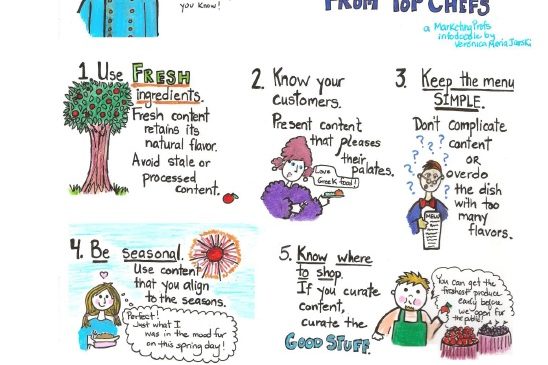 you Know!
FROM TOP CHEFS
a MarketingProfs
infodoodle by
Verónica Maria Jarski
1. Use FRESH
ingredients.
Fresh content
retains its
natural flavor.
Avoid stale or
processed
content.
2. Know your
customers.
Present content
that pleases
their
palates.
Love
Greek food!
3. Keep the menu
SIMPLE.
Don't complicate
content
OR
overdo
the dish
with too
many
flavors.
? ? ? ? ? ?
MENU
4. Be seasonal.
Use content
that you align
to the seasons.
Perfect!
Just what I
was in the mood for
on this spring day!
5. Know where
to shop.
If you curate
content,
curate the
GOOD STUFF.
You can get the
freshest produce
early before
we open for
the public!